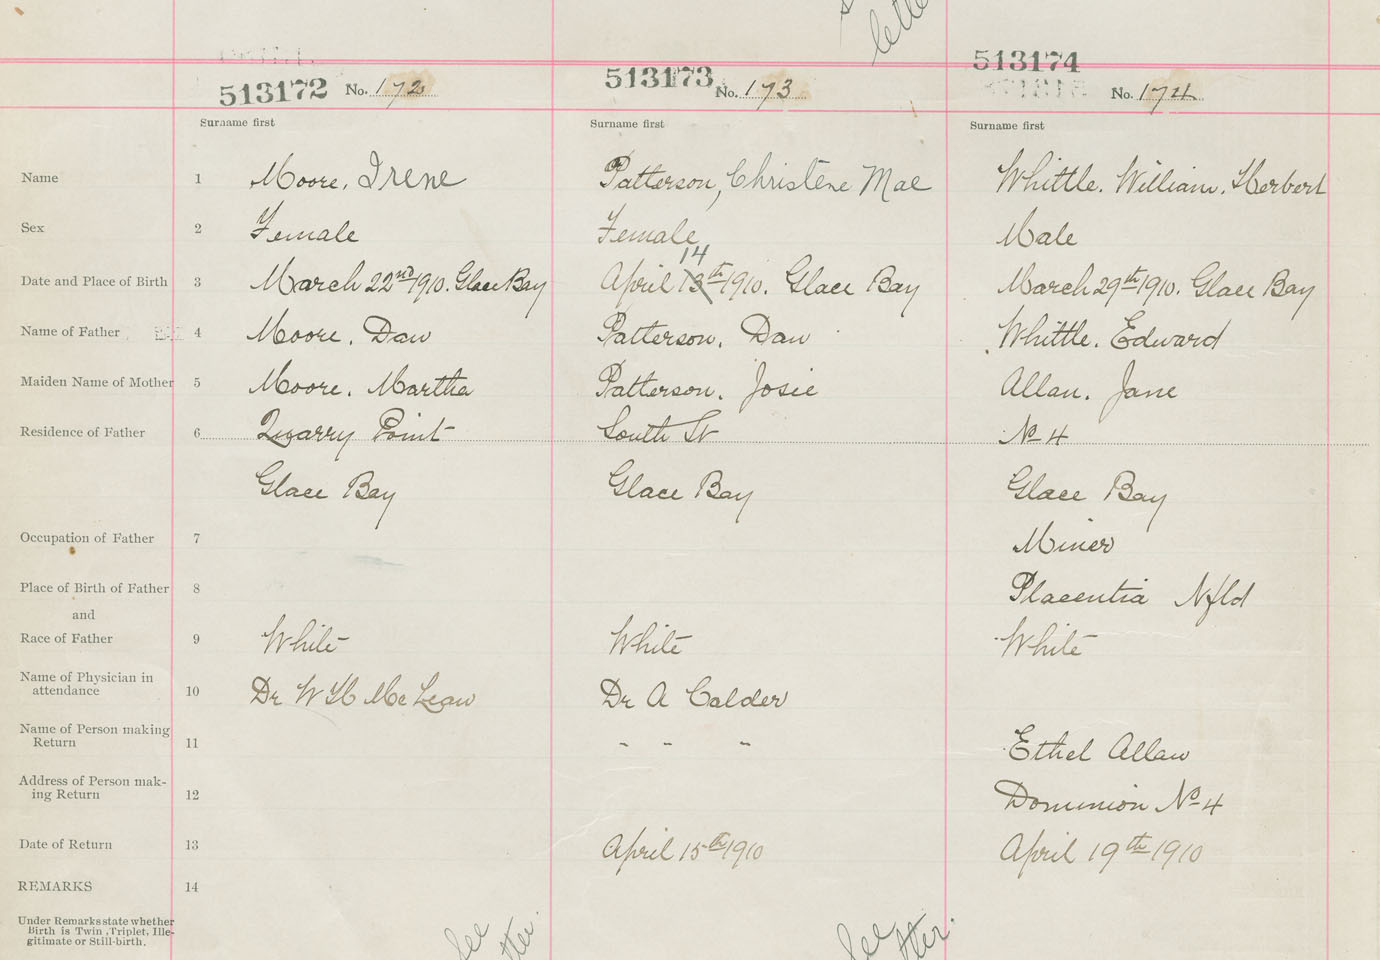 letter
513172 No. 172 513173 No. 173 513174 No. 174
Surname first Surname first Surname first
Name 1 Moore, Irene Patterson, Christene Mae Whittle. William. Herbert
Sex 2 Female Female Male
14
Date and Place of Birth 3 March 22nd 1910. Glace Bay April 13th 1910. Glace Bay March 29th 1910. Glace Bay
Name of Father 4 Moore. Dan Patterson. Dan Whittle. Edward
Maiden Name of Mother 5 Moore. Martha Patterson. Josie Allan. Jane
Residence of Father 6 Quarry Point South St No 4
Glace Bay Glace Bay Glace Bay
Occupation of Father 7 Miner
Place of Birth of Father 8 Placentia Nfld
and
Race of Father 9 White White White
Name of Physician in
attendance 10 Dr W H McLean Dr A Calder
Name of Person making
Return 11 " " " Ethel Allan
Address of Person mak-
ing Return 12 Dominion No 4
Date of Return 13 April 15th 1910 April 19th 1910
REMARKS 14
Under Remarks state whether
Birth is Twin, Triplet, Ille-
gitimate or Still-birth.
See See